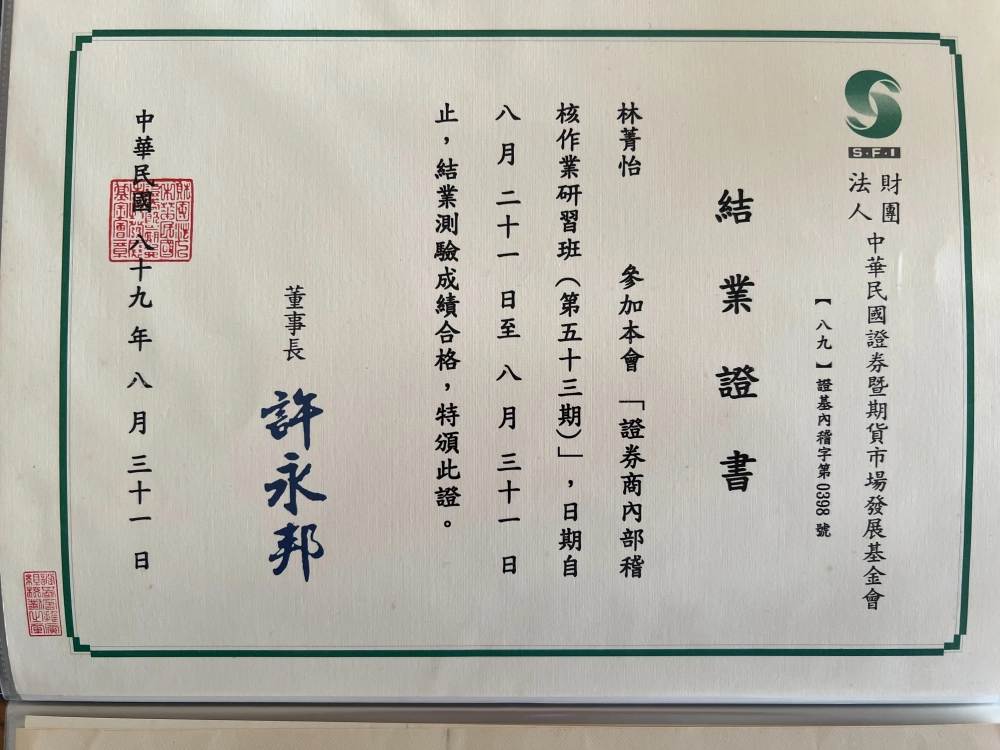 S·F·I
財團法人 中華民國證券暨期貨市場發展基金會
【八九】證基內稽字第0398號
結業證書
林菁怡 參加本會「證券商內部稽
核作業研習班(第五十三期)」,日期自
八月二十一日至八月三十一日
止,結業測驗成績合格,特頒此證。
董事長 許永邦
中華民國八十九年八月三十一日